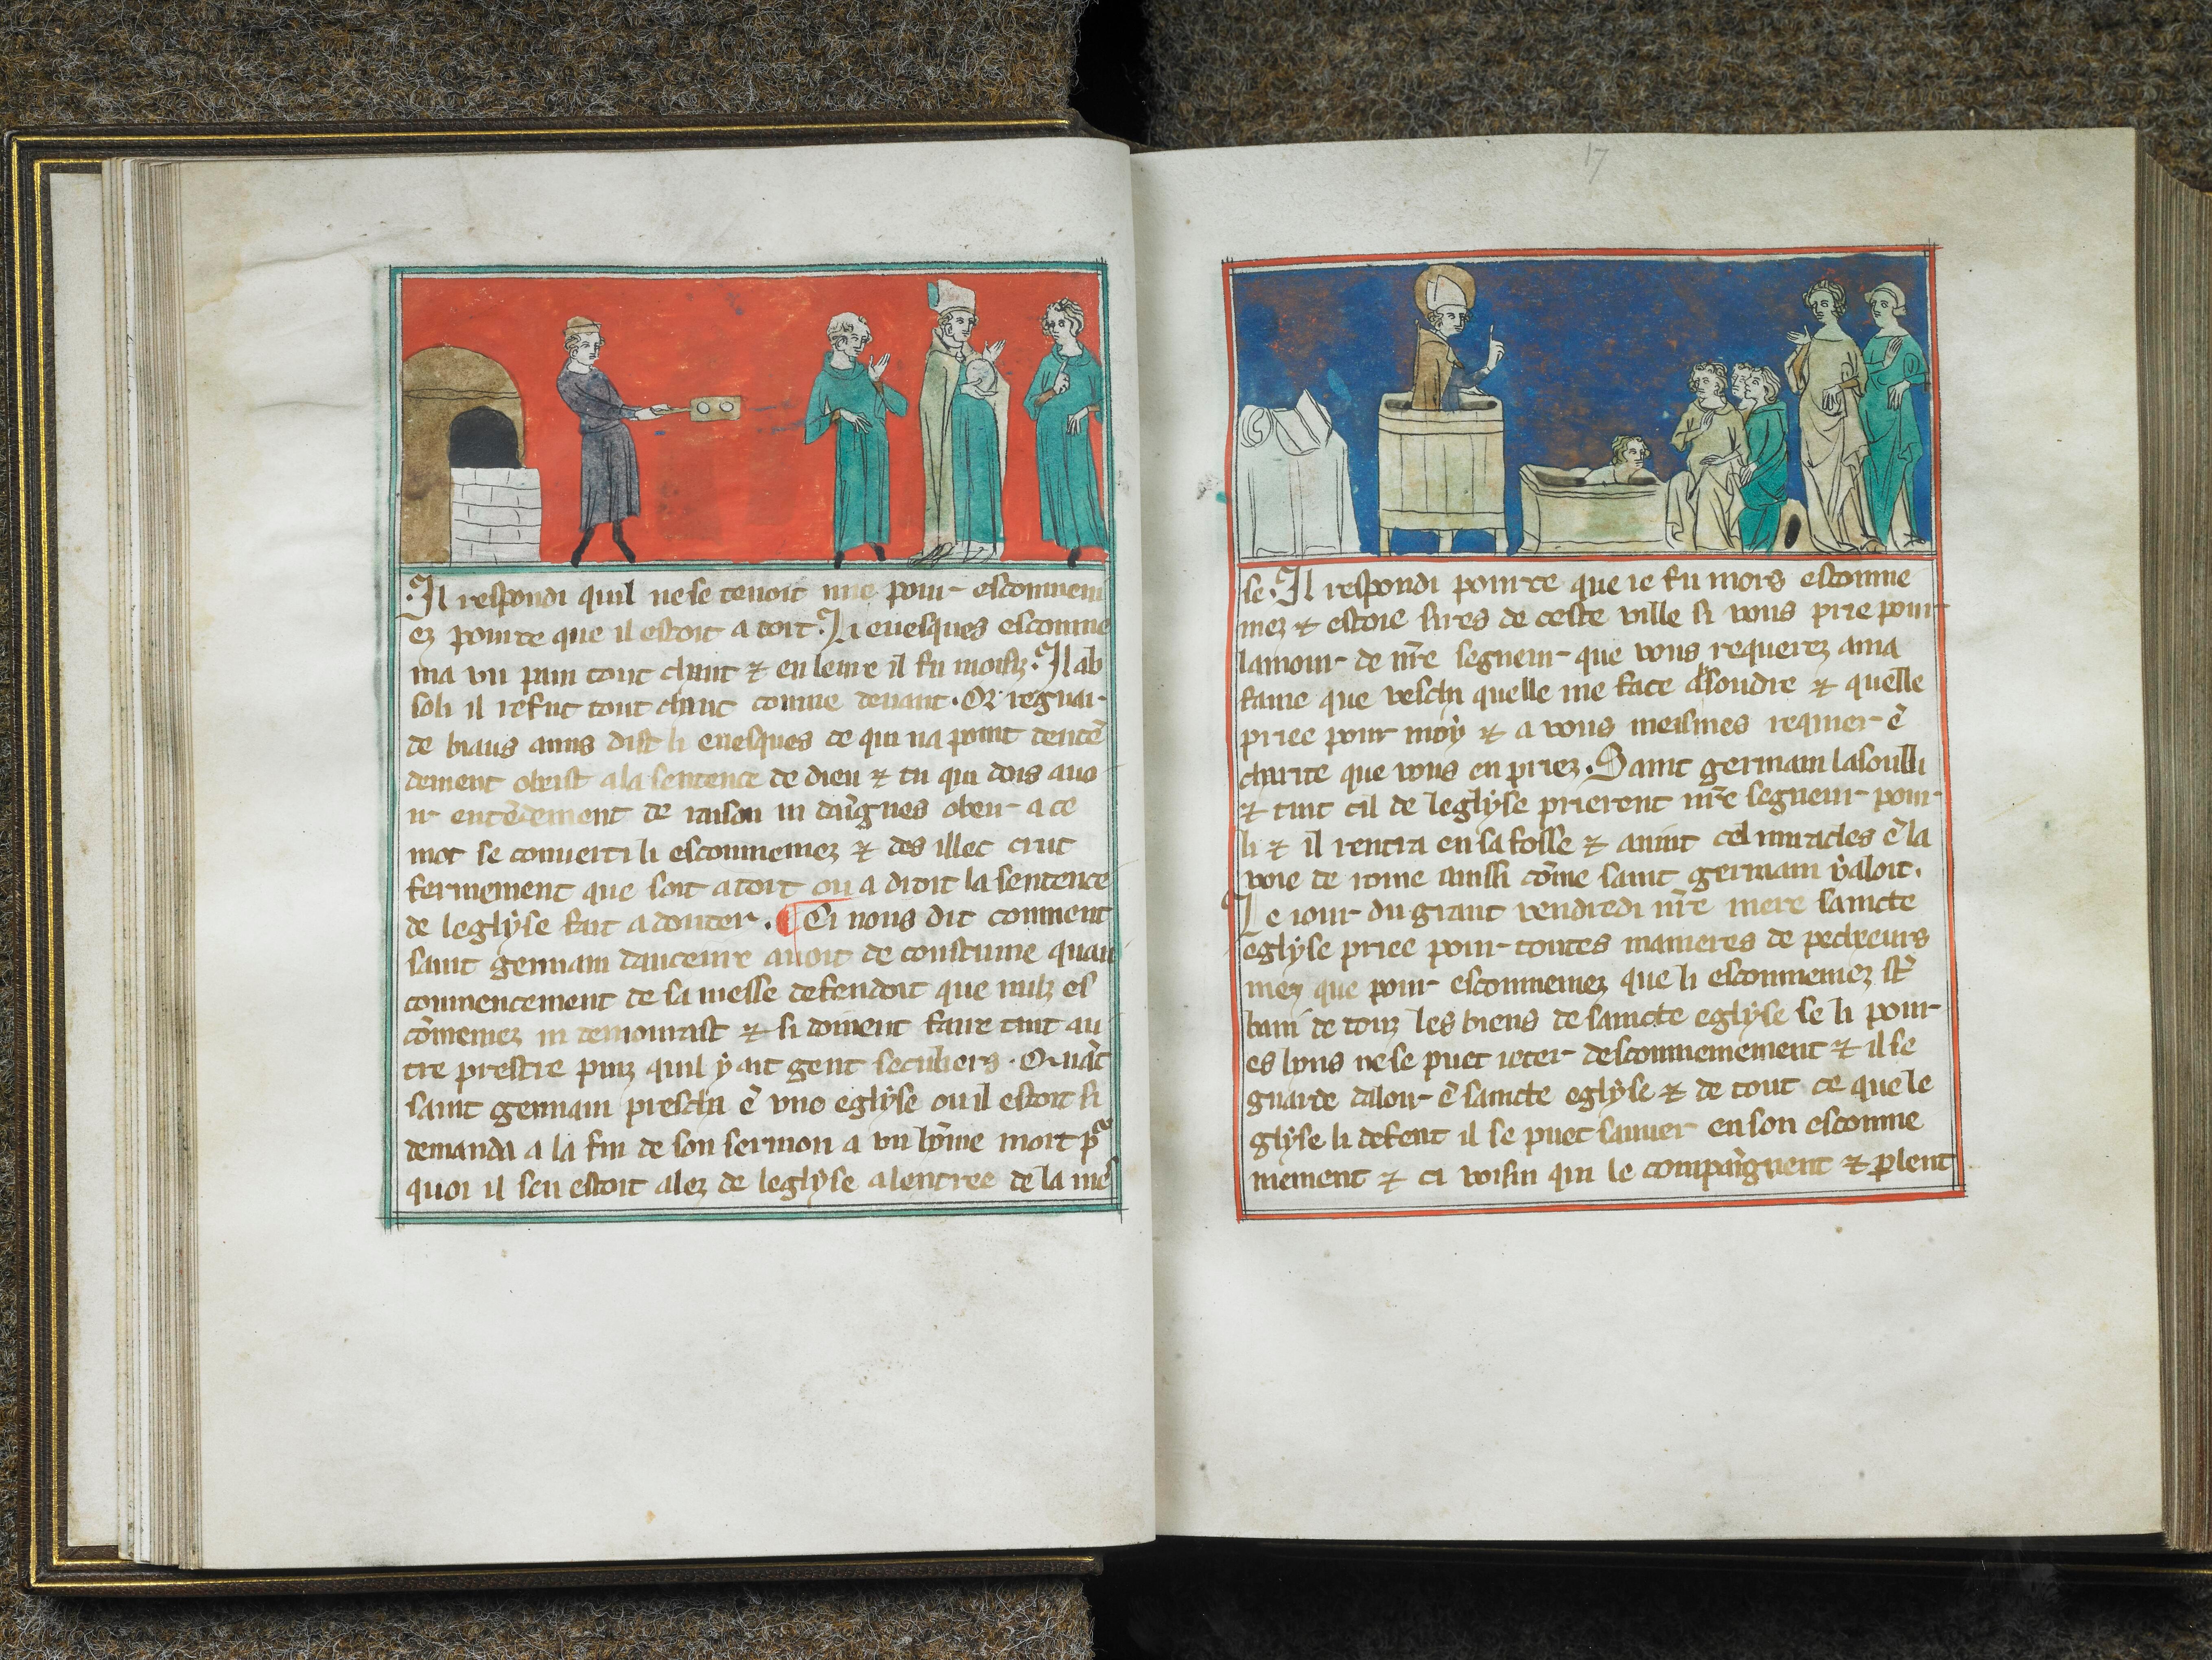 Il respondi quil ne se tenoit mie pour escommeni
ez pour ce que il estoit a tort. Li euesques escomme
nia vn pain tout chaut ⁊ en leure il fu moisiz. Il ab
soli il refut tout chaut comme deuant. Or reguar-
de biaus amis dist li euesques ce qui na point dentẽ
dement obeist a la sentence de dieu ⁊ tu qui dois auo
ir entẽdement de raison ni daĩgnes obeir a ce
mot se conuerti li escommeniez ⁊ des illec crut
fermement que soit a tort ou a droit la sentence
de leglyse fait a douter. Ci nous dit comment
saint germain dauceurre auoit de coustume quau
commencement de sa messe defendoit que nulz es
cõmeniez ni demourast ⁊ si doiuent faire tuit au
tre prestre puiz quil y ait gent seculiers. Quãt
saint germain prescha ẽ vne eglyse ou il estoit si
demanda a la fin de son sermon a vn hõme mort p
quoi il sen estoit alez de leglyse a lentree de la mes
17
se. Il respondi pour ce que ie fu mors escomme
niez ⁊ estoie sires de ceste ville si vous prie pour
lamour de nr̃e segneur que vous requerez a ma
fame que veschi quelle me face assoudre ⁊ quelle
priee pour moy ⁊ a vous meismes requier ẽ
charite que vous en priez. Saint germain lasoulli
⁊ tuit cil de leglyse prierent nr̃e segneur pour
li ⁊ il rentra en sa fosse ⁊ auint cel miracles ẽ la
voie de rome ainssi cõme saint germain y aloit.
Le iour du grant vendredi nr̃e mere saincte
eglyse priee pour toutes manieres de pecheurs
mez que pour escommeniez que li escommeniez st̃
bani de touz les biens de saincte eglyse se li pour
es hons ne se puet ieter descommeniement ⁊ il se
guarde daler ẽ saincte eglyse ⁊ de tout ce que le
glyse li defent il se puet sauuer en son escomme
niement ⁊ ci voisin qui le compaĩgnent ⁊ plent